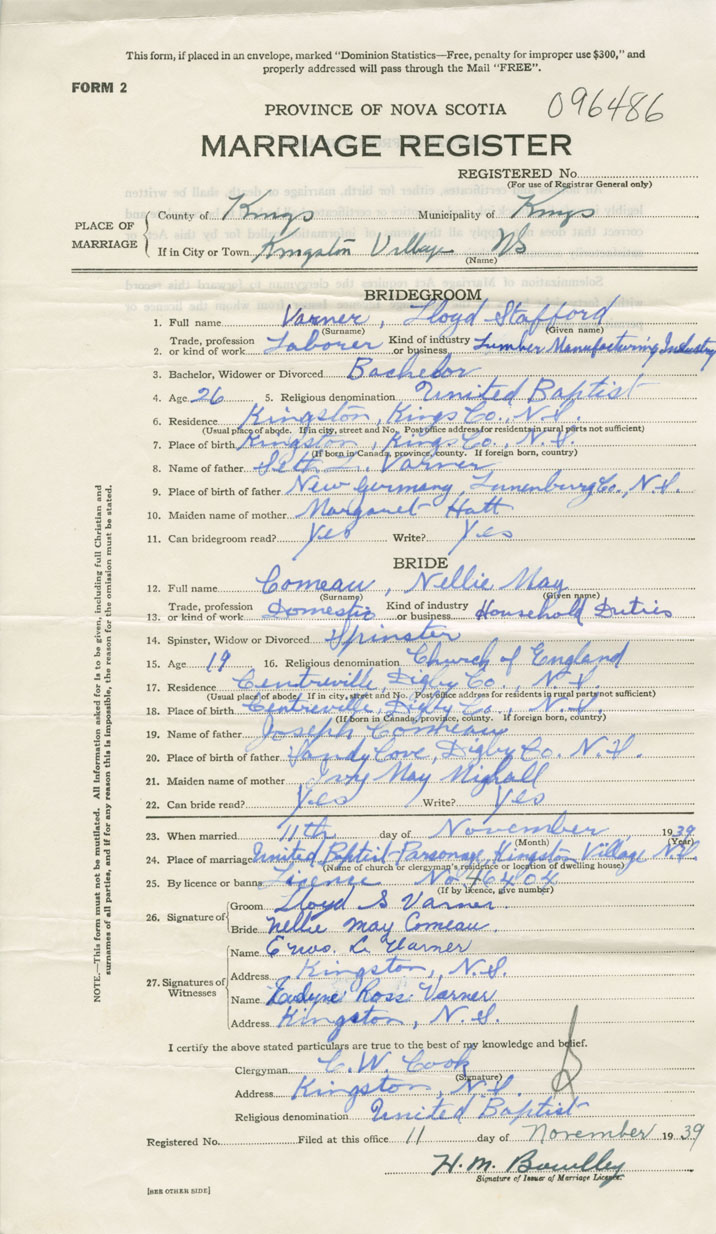 This form, if placed in an envelope, marked "Dominion Statistics—Free, penalty for improper use $300," and
properly addressed will pass through the Mail "FREE".
FORM 2
096486
PROVINCE OF NOVA SCOTIA
MARRIAGE REGISTER
REGISTERED No.
(For use of Registrar General only)
PLACE OF MARRIAGE
County of Kings Municipality of Kings
If in City or Town Kingston Village NS
(Name)
BRIDEGROOM
1. Full name Varner, Lloyd Stafford
(Surname) (Given name)
2. Trade, profession or kind of work Laborer Kind of industry or business Lumber Manufacturing Industry
3. Bachelor, Widower or Divorced Bachelor
4. Age 26 5. Religious denomination United Baptist
6. Residence Kingston, Kings Co., N.S.
(Usual place of abode. If in city, street and No. Post office address for residents in rural parts not sufficient)
7. Place of birth Kingston, Kings Co., N.S.
(If born in Canada, province, county. If foreign born, country)
8. Name of father Seth L. Varner
9. Place of birth of father New Germany, Lunenburg Co., N.S.
10. Maiden name of mother Margaret Hatt
11. Can bridegroom read? Yes Write? Yes
BRIDE
12. Full name Comeau, Nellie May
(Surname) (Given name)
13. Trade, profession or kind of work Domestic Kind of industry or business Household Duties
14. Spinster, Widow or Divorced Spinster
15. Age 19 16. Religious denomination Church of England
17. Residence Centreville, Digby Co., N.S.
(Usual place of abode. If in city, street and No. Post office address for residents in rural parts not sufficient)
18. Place of birth Centreville, Digby Co., N.S.
(If born in Canada, province, county. If foreign born, country)
19. Name of father Joseph Comeau
20. Place of birth of father Sandy Cove, Digby Co. N.S.
21. Maiden name of mother May
22. Can bride read? Yes Write? Yes
23. When married 11th day of November 1939
(Month) (Year)
24. Place of marriage United Baptist Parsonage, Kingston Village N.S.
(Name of church or clergyman's residence or location of dwelling house)
25. By licence or banns Licence No. 46404
(If by licence, give number)
26. Signature of
Groom Lloyd S Varner
Bride Nellie May Comeau.
27. Signatures of Witnesses
Name L. Varner
Address Kingston, N.S.
Name Ross Varner
Address Kingston, N.S.
I certify the above stated particulars are true to the best of my knowledge and belief.
Clergyman C. W. Cook
(Signature)
Address Kingston, N.S.
Religious denomination United Baptist
Registered No. Filed at this office 11 day of November 1939
H. M.
Signature of Issuer of Marriage Licence.
[SEE OTHER SIDE]
NOTE.—This form must not be mutilated. All information asked for is to be given, including full Christian and
surnames of all parties, and if for any reason this is impossible, the reason for the omission must be stated.